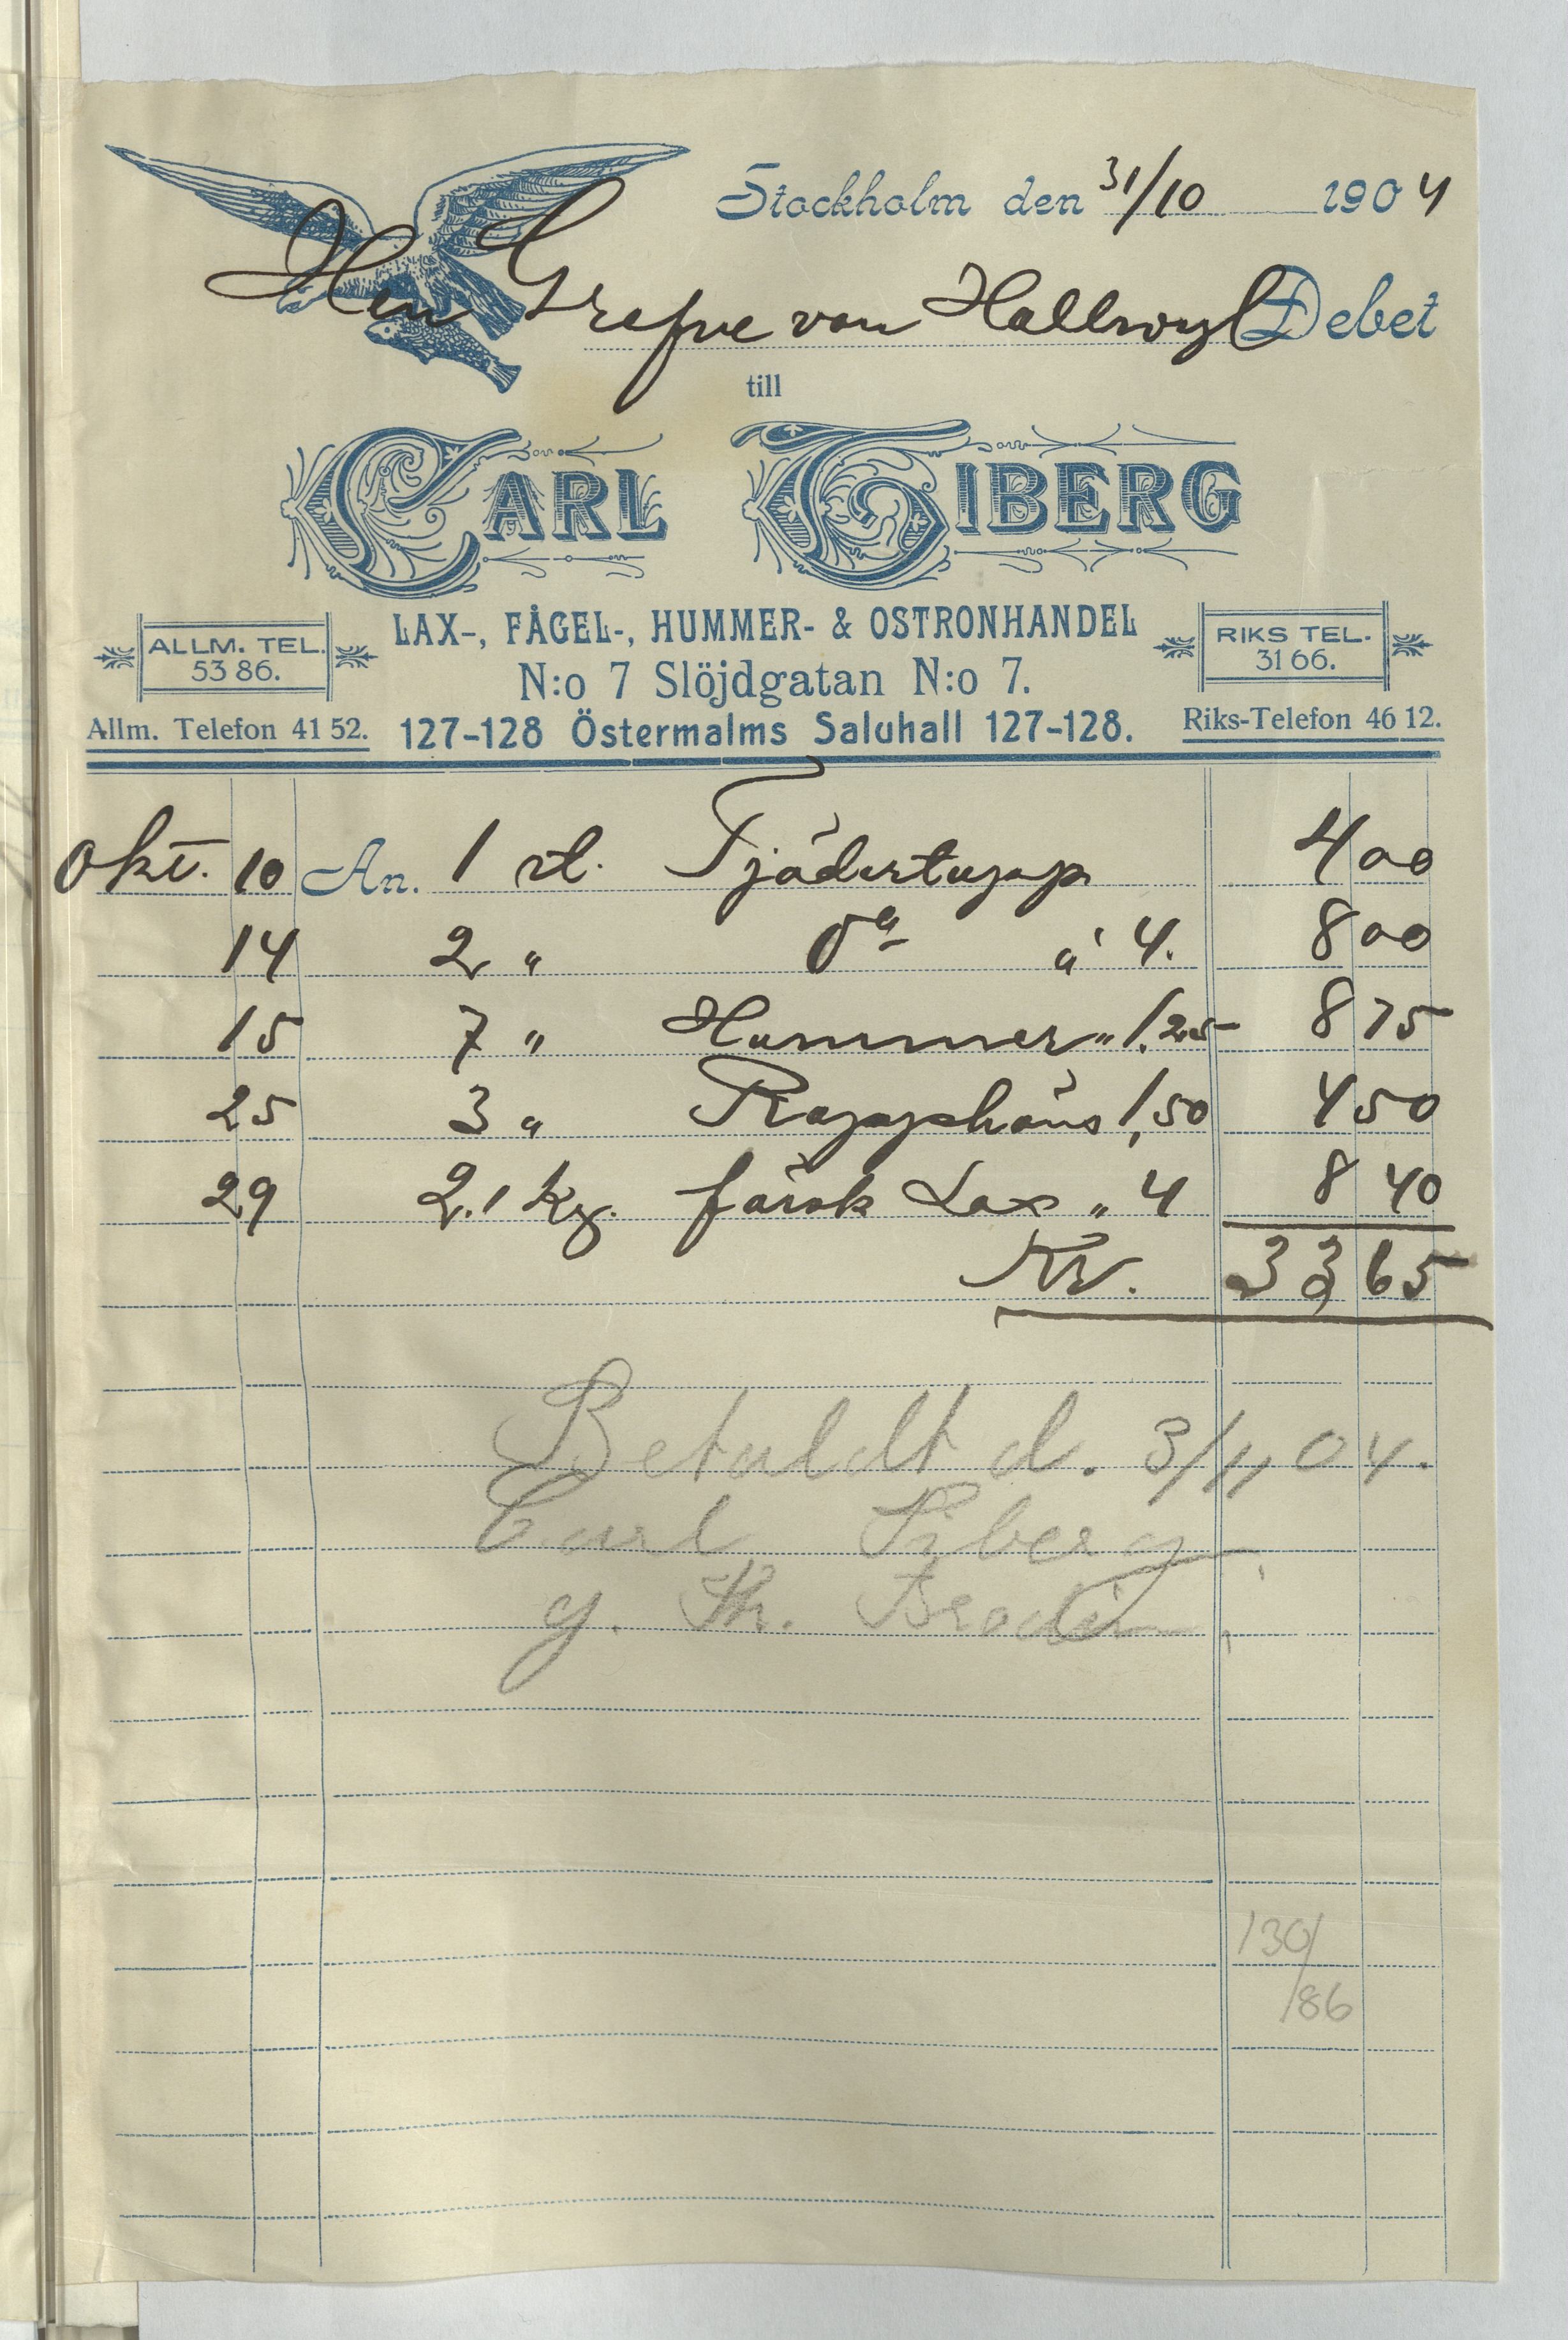 Stockholm den 31/10 1904
Herr Grefve von Hallwyl Debet
till
CARL TIBERG
LAX-, FÅGEL-, HUMMER- & OSTRONHANDEL
ALLM. TEL. 53 86.
RIKS TEL. 31 66.
N:o 7 Slöjdgatan N:o 7.
Allm. Telefon 41 52. 127-128 Östermalms Saluhall 127-128. Riks-Telefon 46 12.
Okt. 10 An. 1 st. Tjädertupp 4 00
14 2 " Do á 4. 8 00
15 7 " Hummer " 1.25 8 75
25 3 " Rapphöns 1,50 4 50
29 2.1 kg. färsk Lax " 4 8 40
Kr. 33 65
Betaldt d. 3/11 04.
Carl Tiberg
g. Th. Brodin
130/
/86